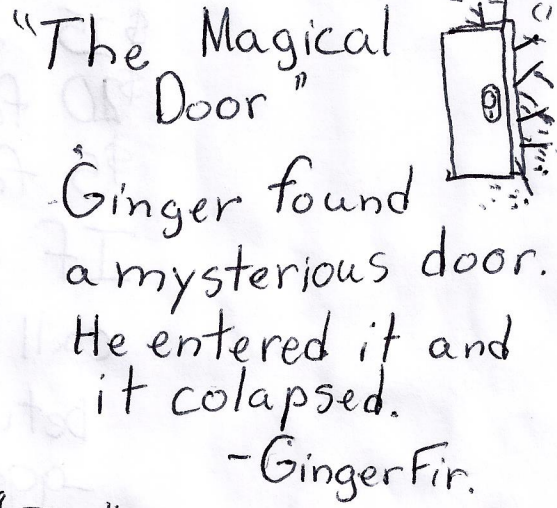 "The Magical
Door"
Ginger found
a mysterious door.
He entered it and
it colapsed.
-GingerFir.